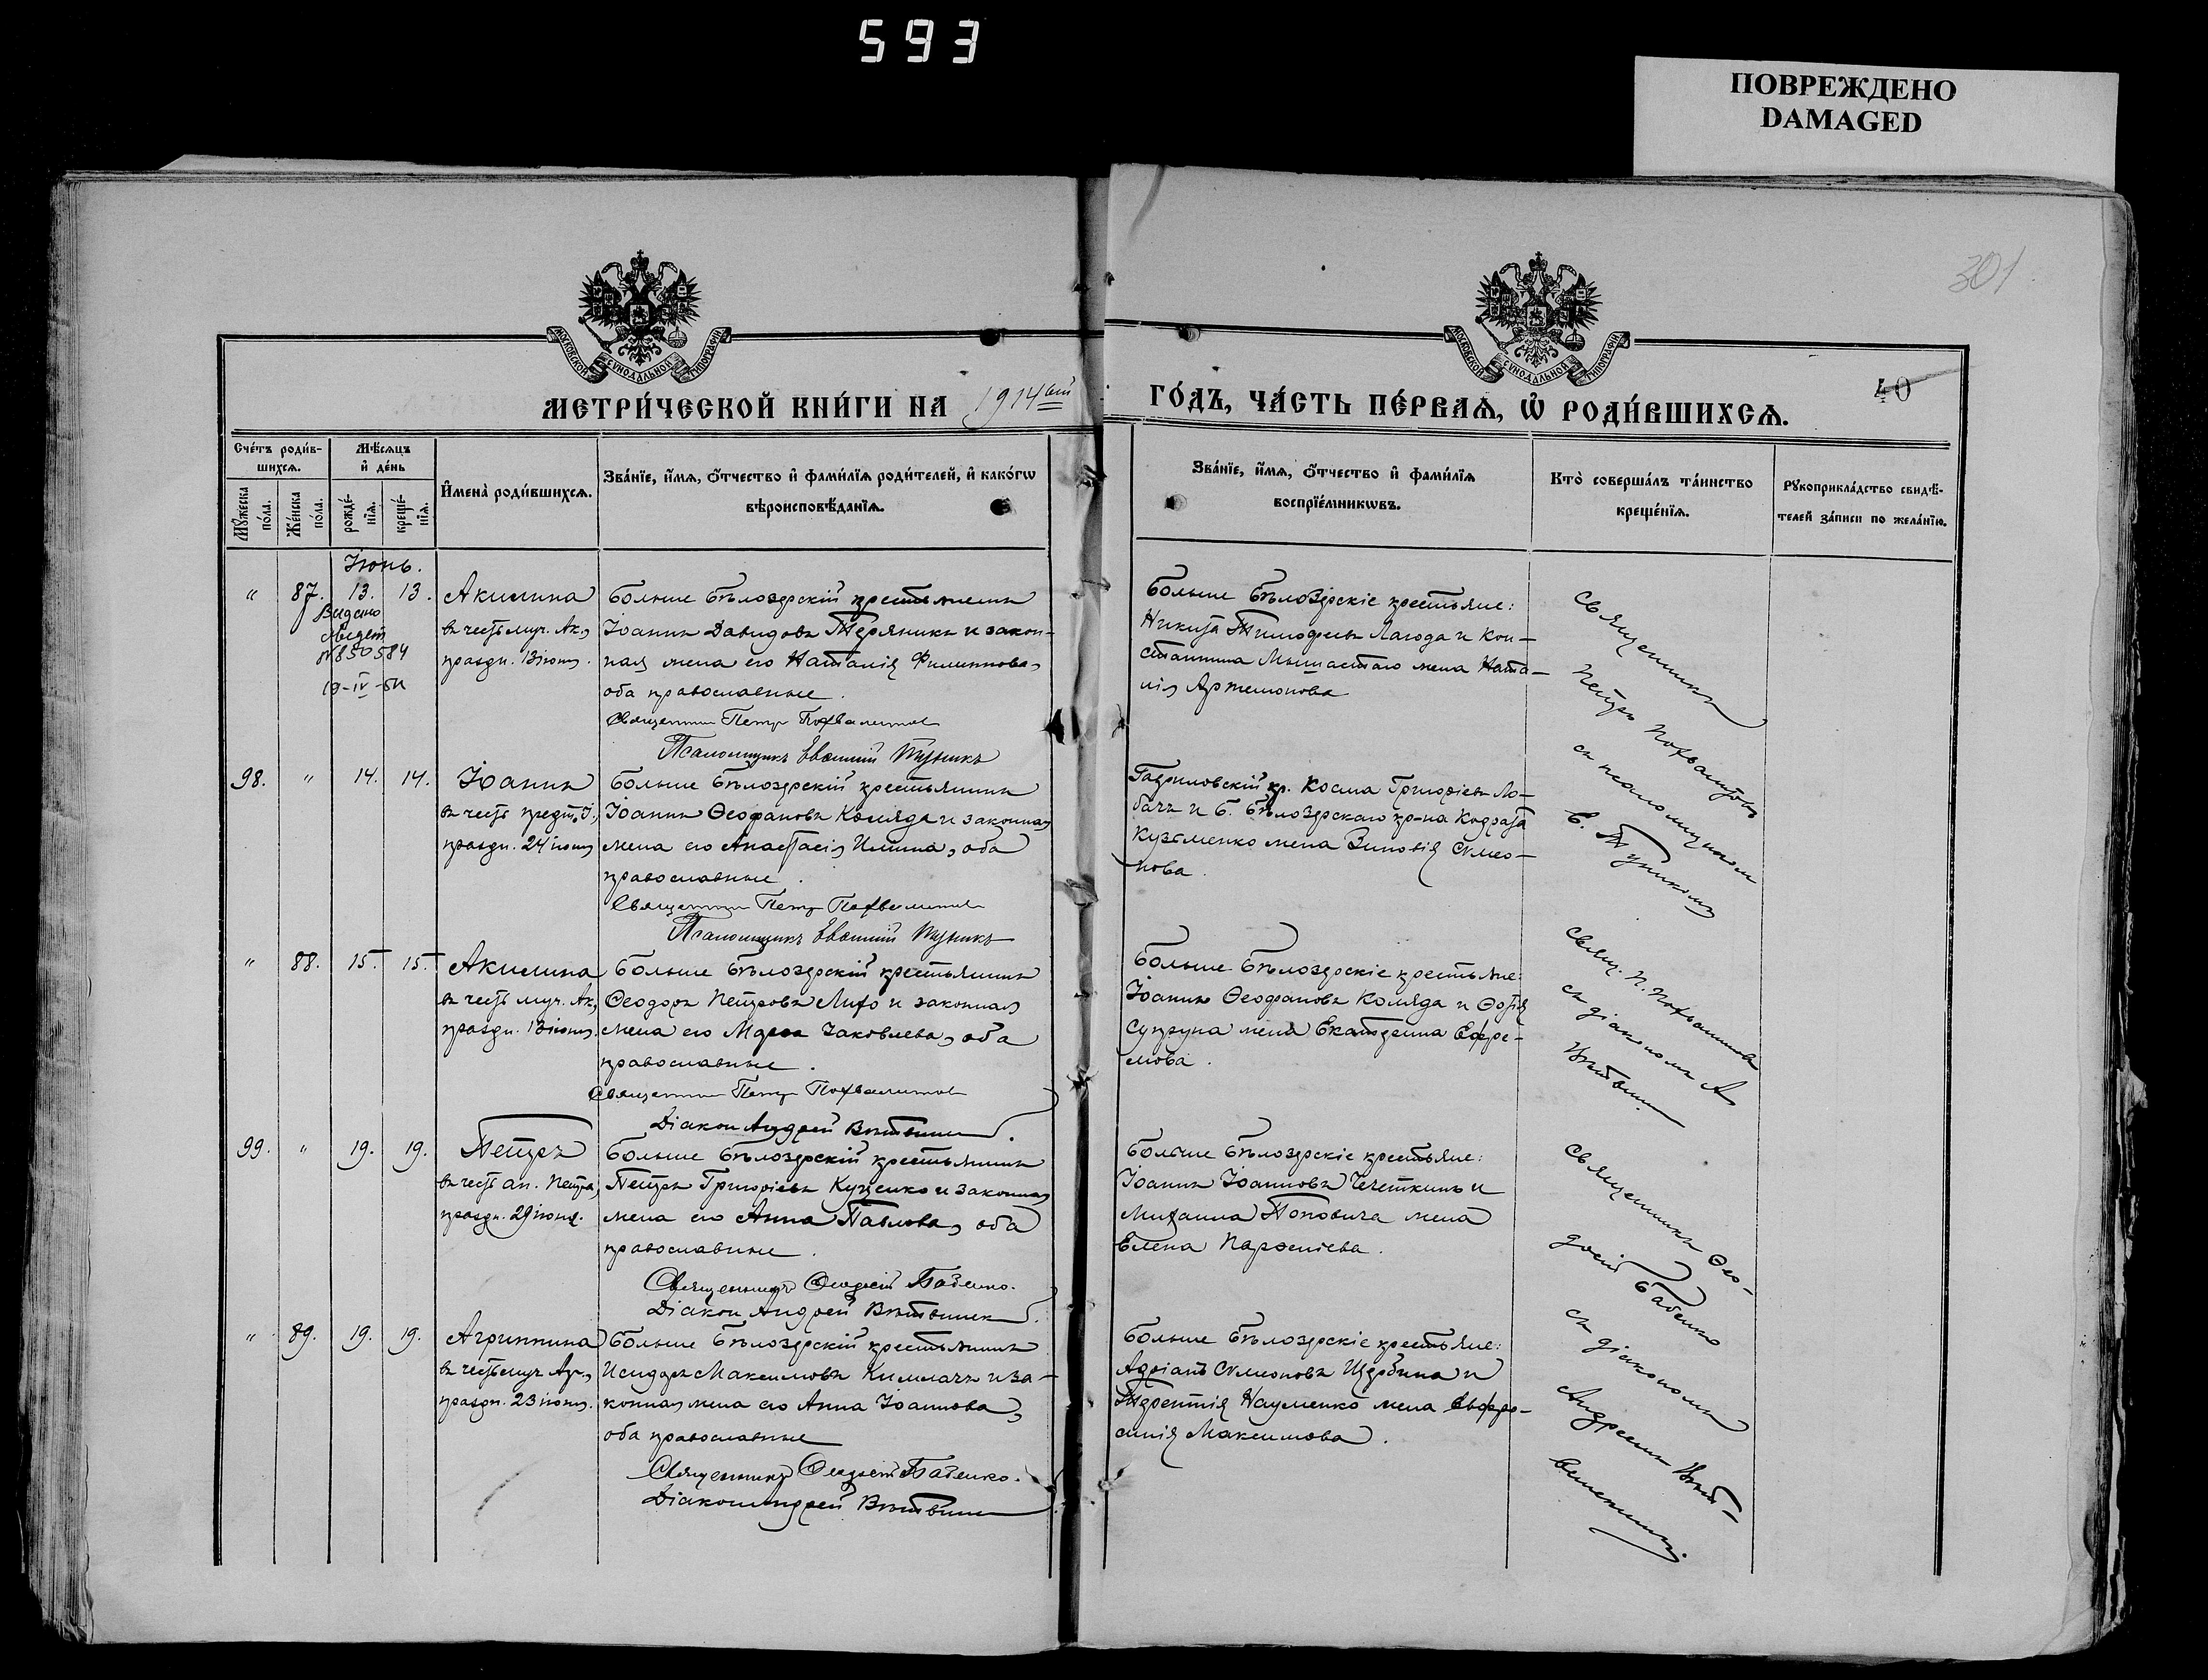 593
ПОВРЕЖДЕНО
DAMAGED
301
МОСКОВСКОЙ СУНОДАЛЬНОЙ ТИПОГРАФІИ
МОСКОВСКОЙ СУНОДАЛЬНОЙ ТИПОГРАФІИ
МЕТРИ́ЧЕСКОЙ КНИ́ГИ НА 1914ый
ГО́ДЪ, ЧА́СТЬ ПЕ́РВАѦ, Ѡ҆ РОДИ́ВШИХСѦ.
40
Сче́тъ роди́в-
шихсѧ.
Мꙋ́жеска
по́ла.
Же́нска
по́ла.
Мѣ́сѧцъ
и҆ де́нь
рожде́-
нїѧ.
креще́-
нїѧ.
И҆мена̀ роди́вшихсѧ.
Зва́нїе, и҆́мѧ, ѻ҆́тчество и҆ фами́лїѧ роди́телей, и҆ како́гѡ
вѣроисповѣ́данїѧ.
Зва́нїе, и҆́мѧ, ѻ҆́тчество и҆ фами́лїѧ
воспрїе́мникѡвъ.
Кто̀ соверша́лъ та́инство
креще́нїѧ.
Рꙋкоприкла́дство свидѣ́-
телей за́писи по жела́нїю.
Іюнь.
" 87. 13. 13. Акилина
въ честь муч. Ак.,
праздн. 13 іюня.
Видано
свидет
№ 850584
19-IV-54
Больше Бѣлозерскій крестьянинъ
Іоаннъ Давидовъ Теряникъ и закон-
ная жена его Наталія Филиппова,
оба православные.
Священникъ Петръ Похвалитовъ
Псаломщикъ Евѳимій Туникъ
Больше Бѣлозерскіе крестьяне:
Никита Тимофеевъ Лагода и Кон-
стантина Мышастаго жена Ната-
лія Артемонова
Священникъ
Петръ Похвалитовъ
съ псаломщикомъ
Е. Туникомъ
98. " 14. 14. Іоаннъ
въ честь предт. І.,
праздн. 24 іюня
Больше Бѣлозерскій крестьянинъ
Іоаннъ Ѳеофановъ Коляда и законная
жена его Анастасія Ильина, оба
православные.
Священникъ Петръ Похвалитовъ
Псаломщикъ Евѳимій Туникъ
Гавриловскій кр. Косма Григоріевъ Ло-
бачъ и Б. Бѣлозерскаго кр-на Кодрата
Кузьменко жена Зиновія Симео-
нова.
" 88. 15. 15. Акилина
въ честь муч. Ак.,
праздн. 13 іюня.
Больше Бѣлозерскій крестьянинъ
Ѳеодоръ Петровъ Лихо и законная
жена его Марѳа Іаковлева, оба
православные.
Священникъ Петръ Похвалитовъ
Діаконъ Андрей Вѣтвини
Больше Бѣлозерскіе крестьяне:
Іоаннъ Ѳеофановъ Коляда и Фотія
Супруна жена Екатерина Ефре-
мова.
Свящ. П. Похвалитовъ
съ діакономъ А.
99. " 19. 19. Петръ
въ честь ап. Петра,
праздн. 29 іюня.
Больше Бѣлозерскій крестьянинъ
Петръ Григоріевъ Куценко и законная
жена его Анна Павлова, оба
православные.
Священникъ Ѳеодосій Бабенко.
Діаконъ Андрей
Больше Бѣлозерскіе крестьяне:
Іоаннъ Іоанновъ Чечеткинъ и
Михаила Поповича жена
Елена Парѳеніева.
Священникъ Ѳео-
досій Бабенко
съ діакономъ
Андреемъ
" 89. 19. 19. Агриппина
въ честь муч. Агр.,
праздн. 23 іюня.
Больше Бѣлозерскій крестьянинъ
Исидоръ Максимовъ Килимачъ и за-
конная жена его Анна Іоаннова,
оба православные
Священникъ Ѳеодосій Бабенко.
Діаконъ Андрей
Больше Бѣлозерскіе крестьяне:
Адріанъ Симеоновъ Щербина и
Терентія Науменко жена Евфро-
синія Максимова.